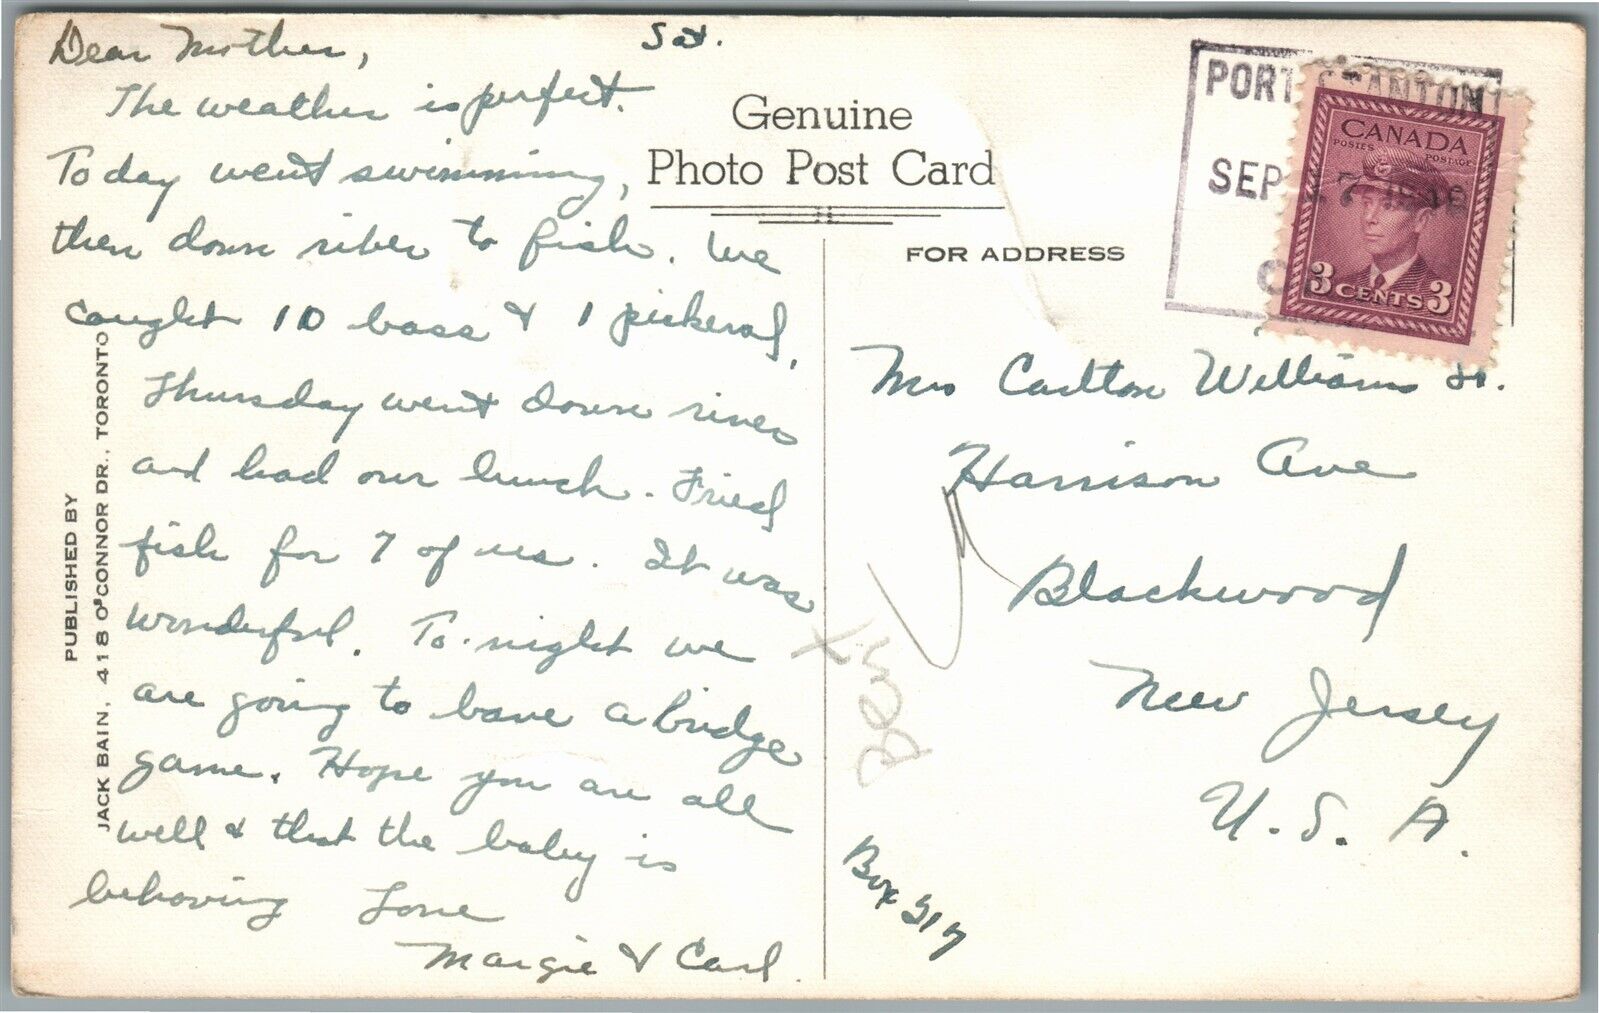 Dear Mother,
Sat.
The weather is perfect.
To day went swimming,
then down river to fish. We
caught 10 bass & 1 pickeral.
Thursday went down river
and had our lunch. Fried
fish for 7 of us. It was
wonderful. To-night we
are going to have a bridge
game. Hope you are all
well & that the baby is
behaving Love
Margie & Carl.
PUBLISHED BY
JACK BAIN, 418 O'CONNOR DR., TORONTO
Genuine
Photo Post Card
FOR ADDRESS
PORT STANTON
SEP 7 1946
CANADA
POSTES POSTAGE
3 CENTS 3
Mrs Carlton Williams Sr.
Harrison Ave
Blackwood
New Jersey
U. S. A.
Box 217